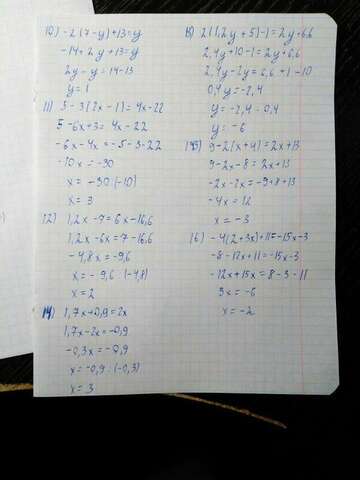 10) -2(7-y)+13=y
-14+2y+13=y
2y-y=14-13
y=1
11) 5-3(2x-1)=4x-22
5-6x+3=4x-22
-6x-4x=-5-3-22
-10x=-30
x=-30:(-10)
x=3
12) 1,2x-7=6x-16,6
1,2x-6x=7-16,6
-4,8x=-9,6
x=-9,6:(-4,8)
x=2
14) 1,7x+0,9=2x
1,7x-2x=-0,9
-0,3x=-0,9
x=-0,9:(-0,3)
x=3
2(1,2y+5)-1=2y+6,6
2,4y+10-1=2y+6,6
2,4y-2y=6,6+1-10
0,4y=-2,4
y=-2,4:0,4
y=-6
9-2(x+4)=2x+13
9-2x-8=2x+13
-2x-2x=-9+8+13
-4x=12
x=-3
16) -4(2+3x)+11=-15x-3
-8-12x+11=-15x-3
-12x+15x=8-3-11
3x=-6
x=-2